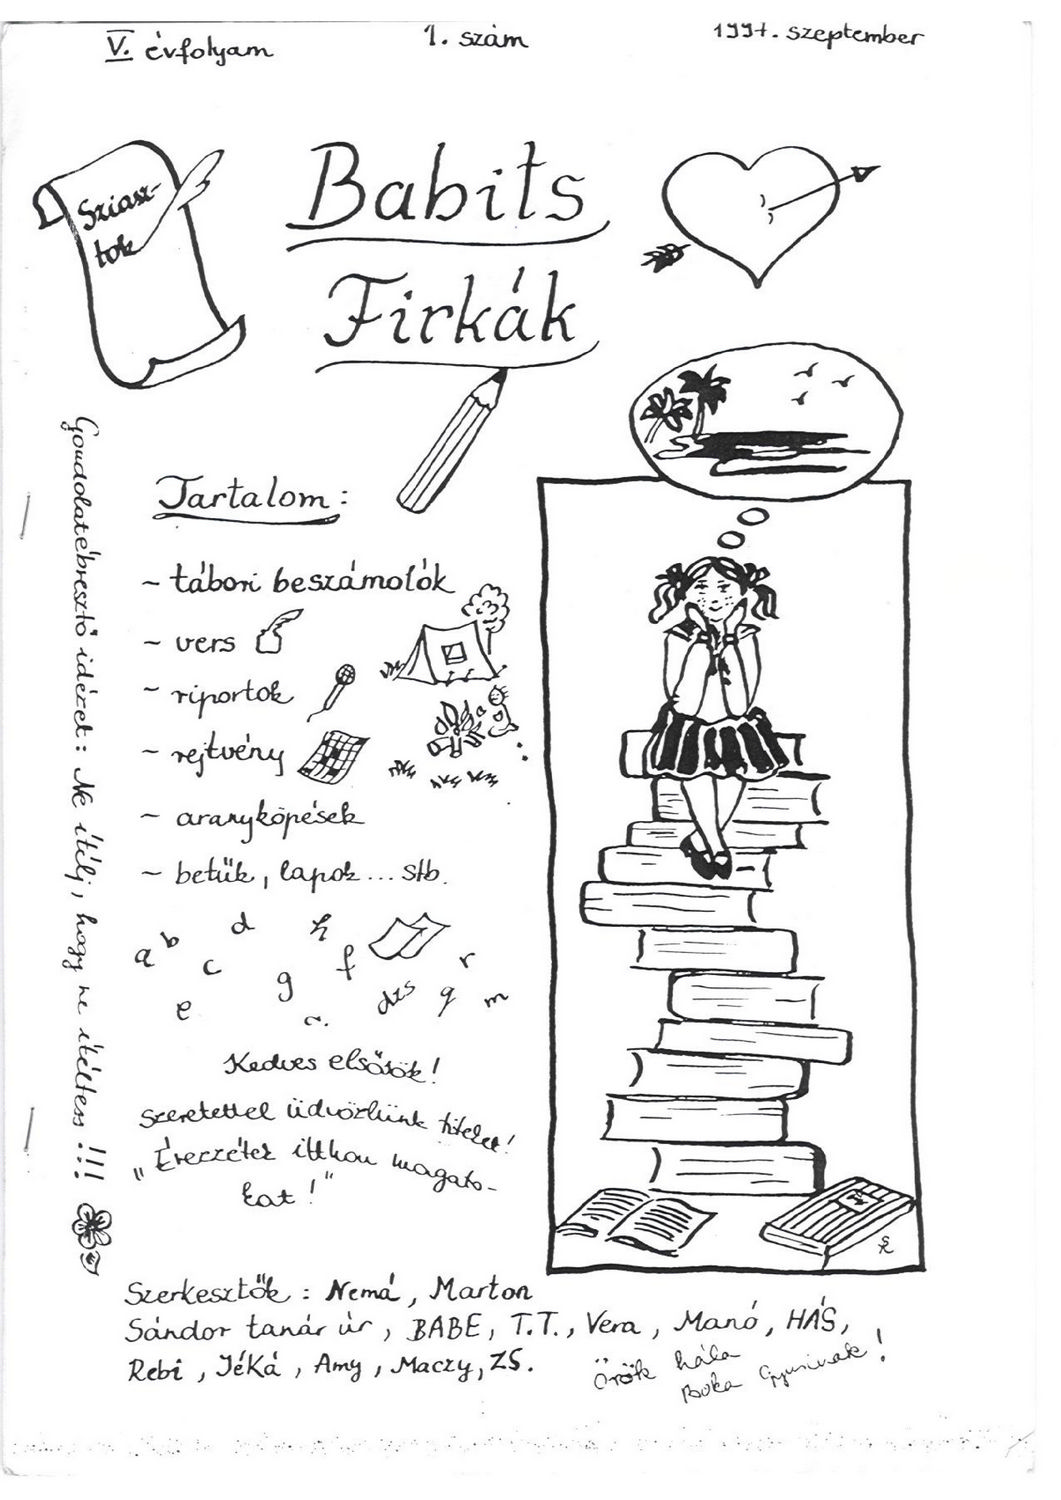 V. évfolyam
1. szám
1997. szeptember
Sziasz-
tok
Babits
Firkák
Gondolatébresztő idézet: Ne ítélj, hogy ne ítéltess!!!
Tartalom:
~ tábori beszámolók
~ vers
~ riportok
~ rejtvény
~ aranyköpések
~ betűk, lapok... stb.
a b c d e f g h
dzs q r m
Kedves elsősök!
Szeretettel üdvözlünk titeket!
"Érezzétek itthon magato-
kat!"
SK
Szerkesztők: Nemá, Marton
Sándor tanár úr, BABE, T.T., Vera, Manó, HÁS,
Rebi, JéKá, Amy, Maczy, ZS.
Örök hála
Boka Gyusinak!